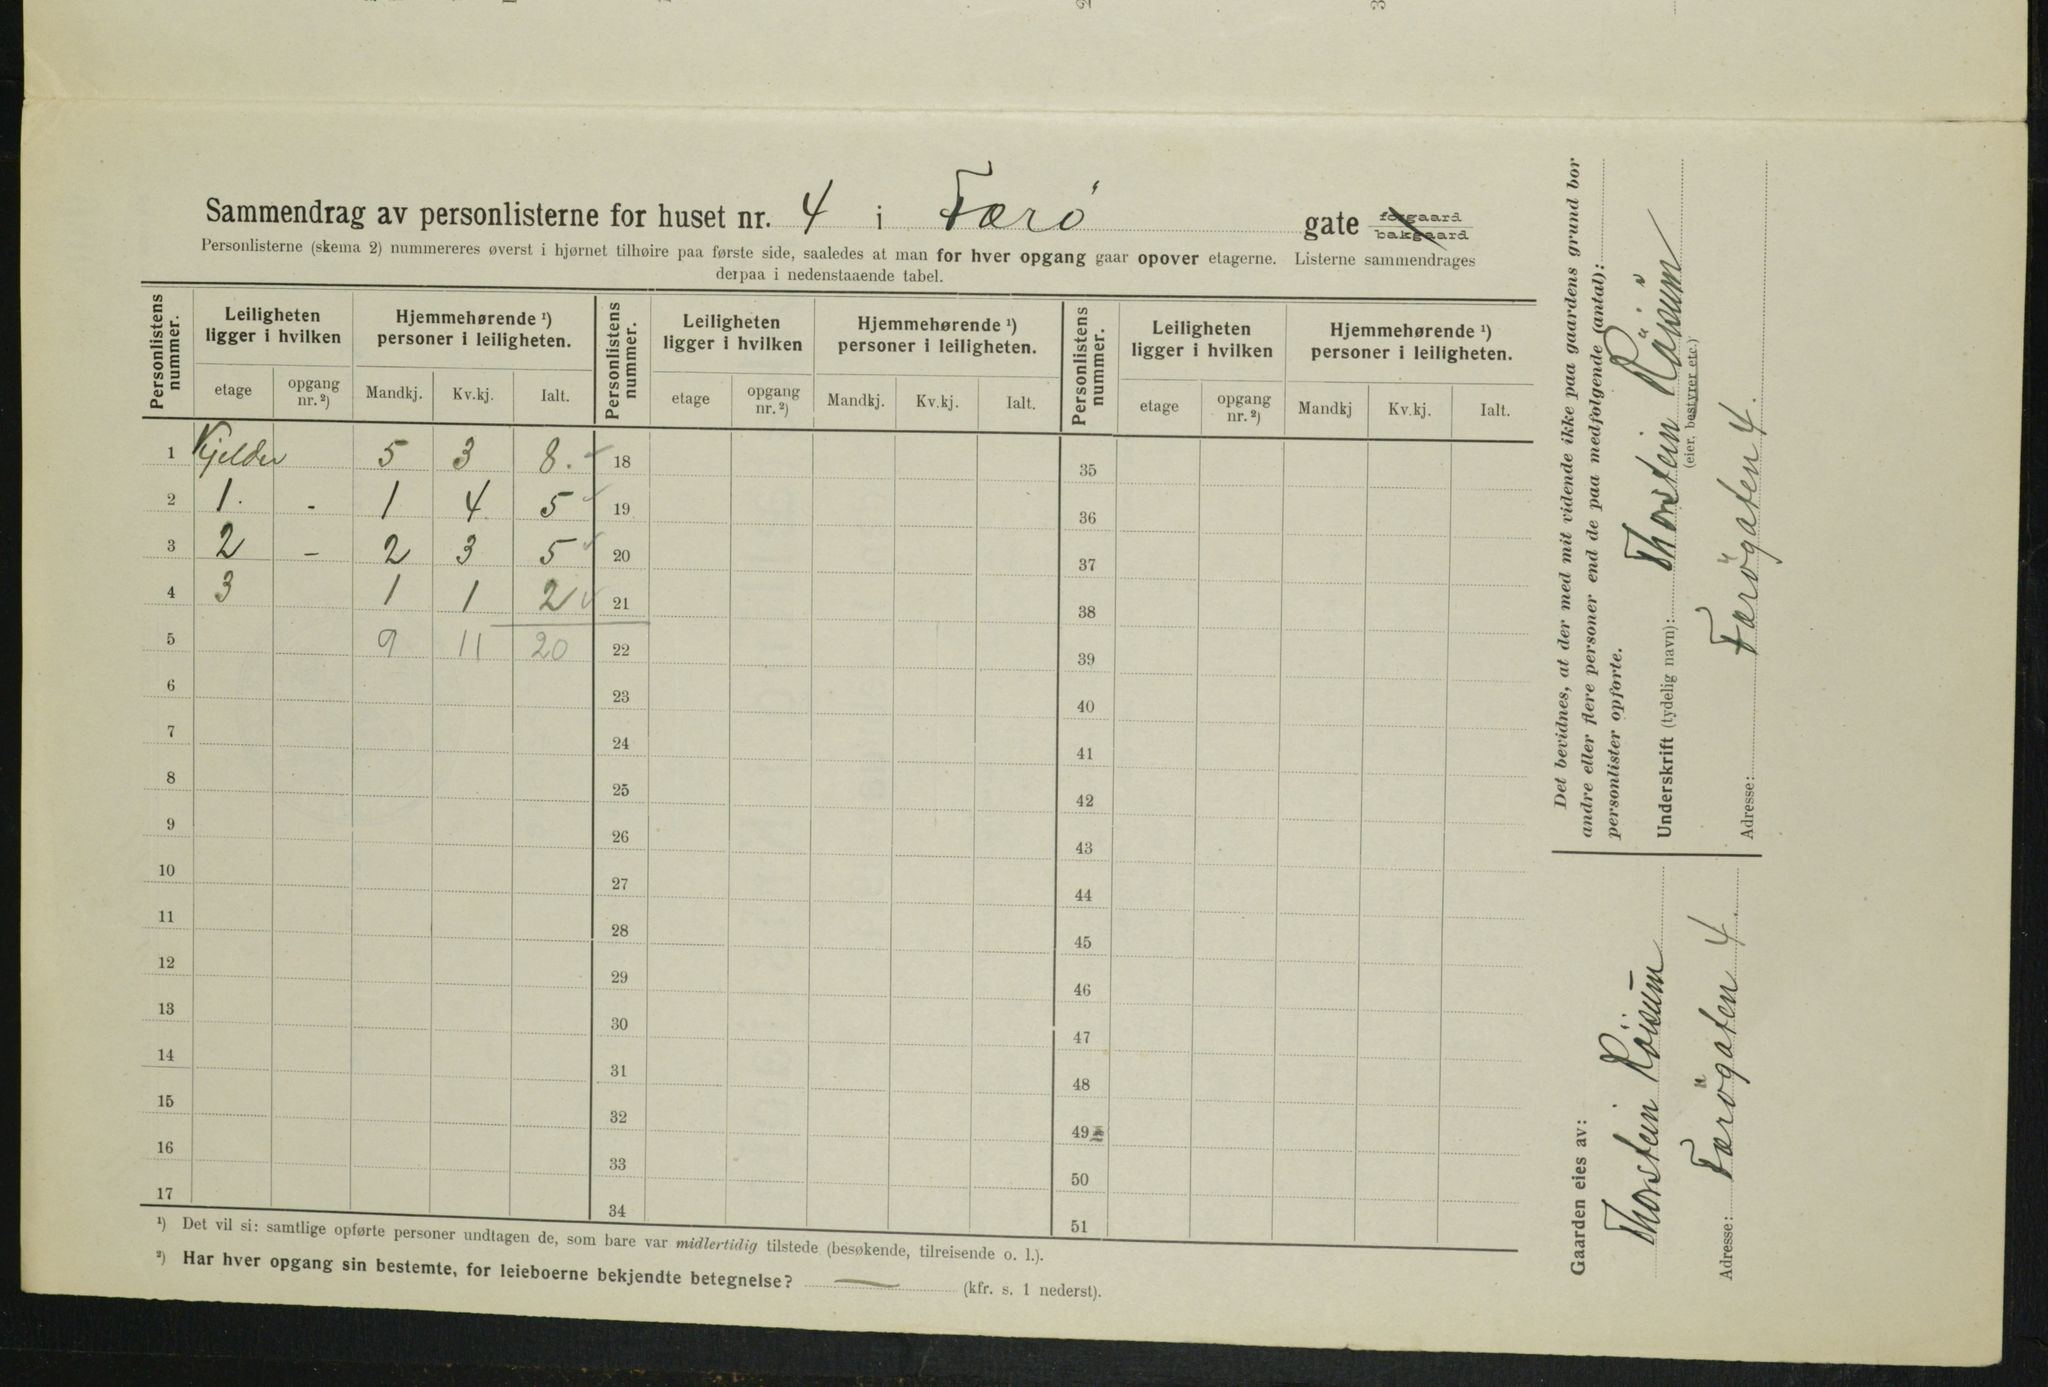 Sammendrag av personlisterne for huset nr. 4 i Færö gate forgaard bakgaard
Personlisterne (skema 2) nummereres øverst i hjørnet tilhøire paa første side, saaledes at man for hver opgang gaar opover etagerne. Listerne sammendrages
derpaa i nedenstaaende tabel.
Personlistens nummer. Leiligheten ligger i hvilken Hjemmehørende ¹) personer i leiligheten. Personlistens nummer. Leiligheten ligger i hvilken Hjemmehørende ¹) personer i leiligheten. Personlistens nummer. Leiligheten ligger i hvilken Hjemmehørende ¹) personer i leiligheten.
etage opgang nr. ²) Mandkj. Kv.kj. Ialt. etage opgang nr. ²) Mandkj. Kv.kj. Ialt. etage opgang nr. ²) Mandkj Kv.kj. Ialt.
1 Kjelder 5 3 8. 18 35
2 1. - 1 4 5 19 36
3 2 - 2 3 5 20 37
4 3 1 1 2 21 38
5 9 11 20 22 39
6 23 40
7 24 41
8 25 42
9 26 43
10 27 44
11 28 45
12 29 46
13 30 47
14 31 48
15 32 49
16 33 50
17 34 51
¹) Det vil si: samtlige opførte personer undtagen de, som bare var midlertidig tilstede (besøkende, tilreisende o. l.).
²) Har hver opgang sin bestemte, for leieboerne bekjendte betegnelse? — (kfr. s. 1 nederst).
Det bevidnes, at der med mit vidende ikke paa gaardens grund bor
andre eller flere personer end de paa medfolgende (antal):
personlister opforte.
Underskrift (tydelig navn): Thorstein Röisum
(eier, bestyrer etc.)
Adresse: Færögaten 4.
Gaarden eies av:
Thorstein Röisum
Adresse: Færögaten 4.